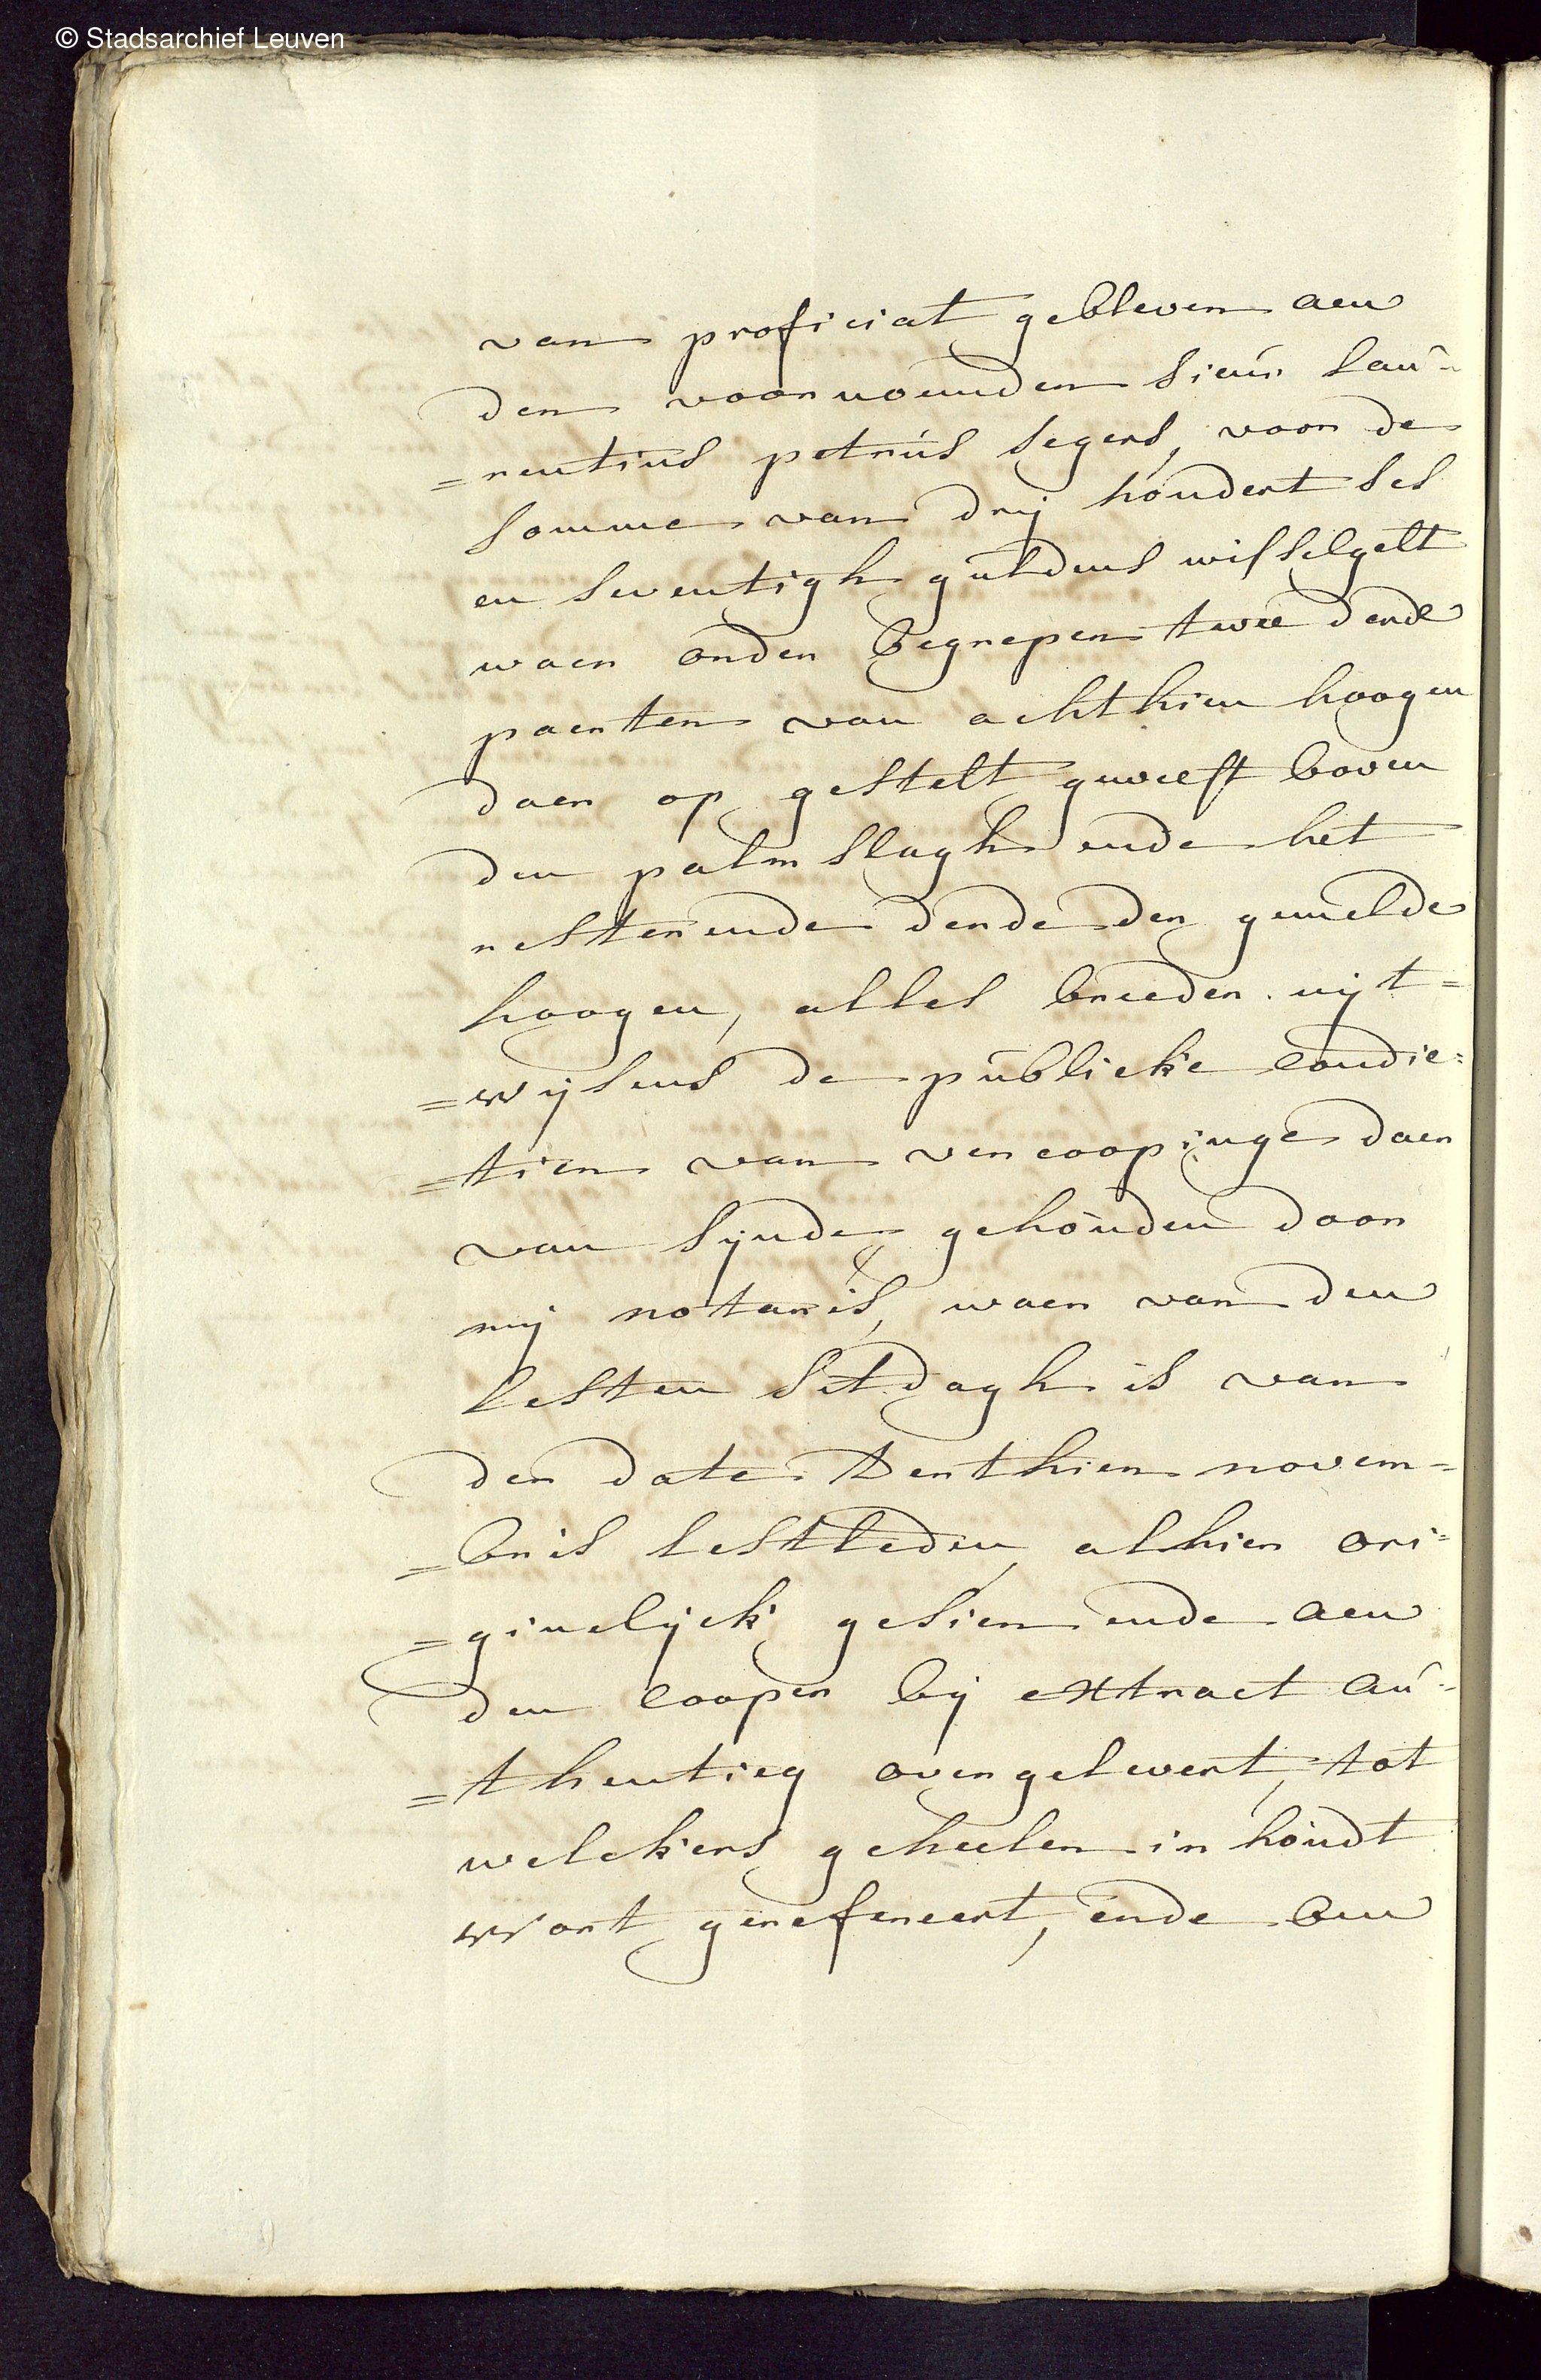 © Stadsarchief Leuven
van proficiat gebleven aen
den voornoemden sieúr Laú-
=rentius petrús segers, voor de
somme van drij hondert ses
en seventigh gúldens wisselgelt
waer onder begrepen twee derde
paerten van achthien hoogen
daer op gestelt geweest boven
den palmslagh ende het
resterende derde der gemelde
hoogen, alles breeder uijt=
=wijsens de públicke condie=
=tien van vercoopinge daer
van sijnde gehoúden door
mij notaris, waer van den
lesten sitdagh is van
der date derthien novem=
=bris lestleden, alhier ori=
=ginelijck gesien ende aen
den cooper bij extract aú-
=thenticq overgelevert, tot
welckers geheelen inhoúdt
wort gerefereert, ende om